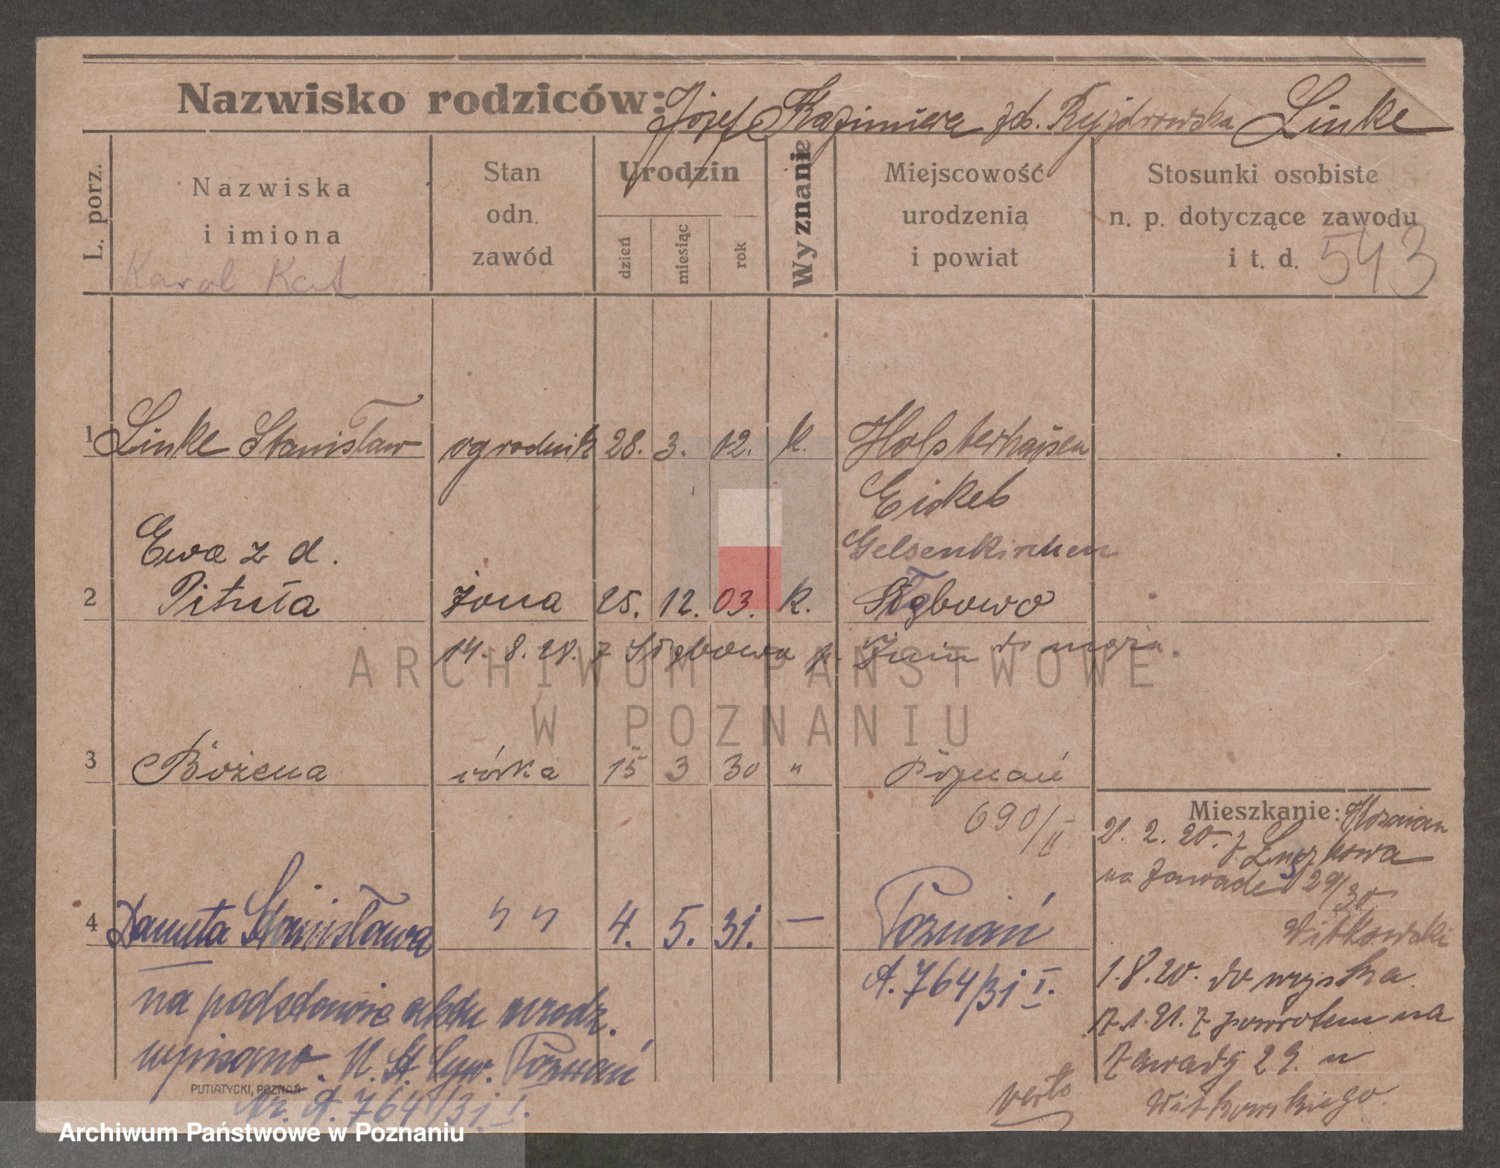 Nazwisko rodziców: Józef Kazimiera zd. Ryjdrowska Linke
L. porz.
Nazwiska
i imiona
Karol Kat
Stan
odn.
zawód
Urodzin
dzień
miesiąc
rok
Wyznanie
Miejscowość
urodzenia
i powiat
Stosunki osobiste
n. p. dotyczące zawodu
i t. d.
543
1 Linke Stanisław ogrodnik 28. 3. 02. k. Holsterhausen
Eickel
Gelsenkirchen
Ewa z d.
2 Pituła żona 25. 12. 03. k. Słębowo
14. 8. 28. z Słębowa p. Żnin do męża.
3 Bożena córka 15 3 30 " Poznań
690/II
Mieszkanie: Poznań
21. 2. 20. z
na Zawade 29/30
Witkowski
4 Danuta Stanisława " " 4. 5. 31. — Poznań
A. 764/31 I.
na podstawie aktu urodz.
wpisano. U. St. Cyw. Poznań
Nr. A. 764/31. I.
1.8.20. do wojska.
7.1.21. z powrotem na
Zawady 29. u
Witkowskiego.
verte
PUTIATYCKI, POZNAŃ
ARCHIWUM PAŃSTWOWE
W POZNANIU
Archiwum Państwowe w Poznaniu